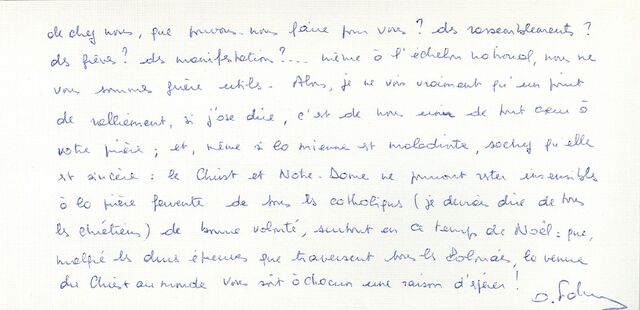 de chez nous, que pouvons-nous faire pour vous? des rassemblements?
des grèves? des manifestation?... même à l'échelon national, nous ne
vous sommes guère utils. Alors, je ne vois vraiment qu'un point
de ralliement, si j'ose dire, c'est de nous unir de tout cœur à
votre prière; et, même si la mienne est maladroite, sachez qu'elle
est sincère: le Christ et Notre-Dame ne pourront rester insensibles
à la prière fervente de tous les catholiques (je devrais dire de tous
les chrétiens) de bonne volonté, surtout en ce temps de Noël: que,
malgré les dures épreuves que traversent tous les Polonais, la venue
du Christ au monde vous soit à chacun une raison d'espérer!